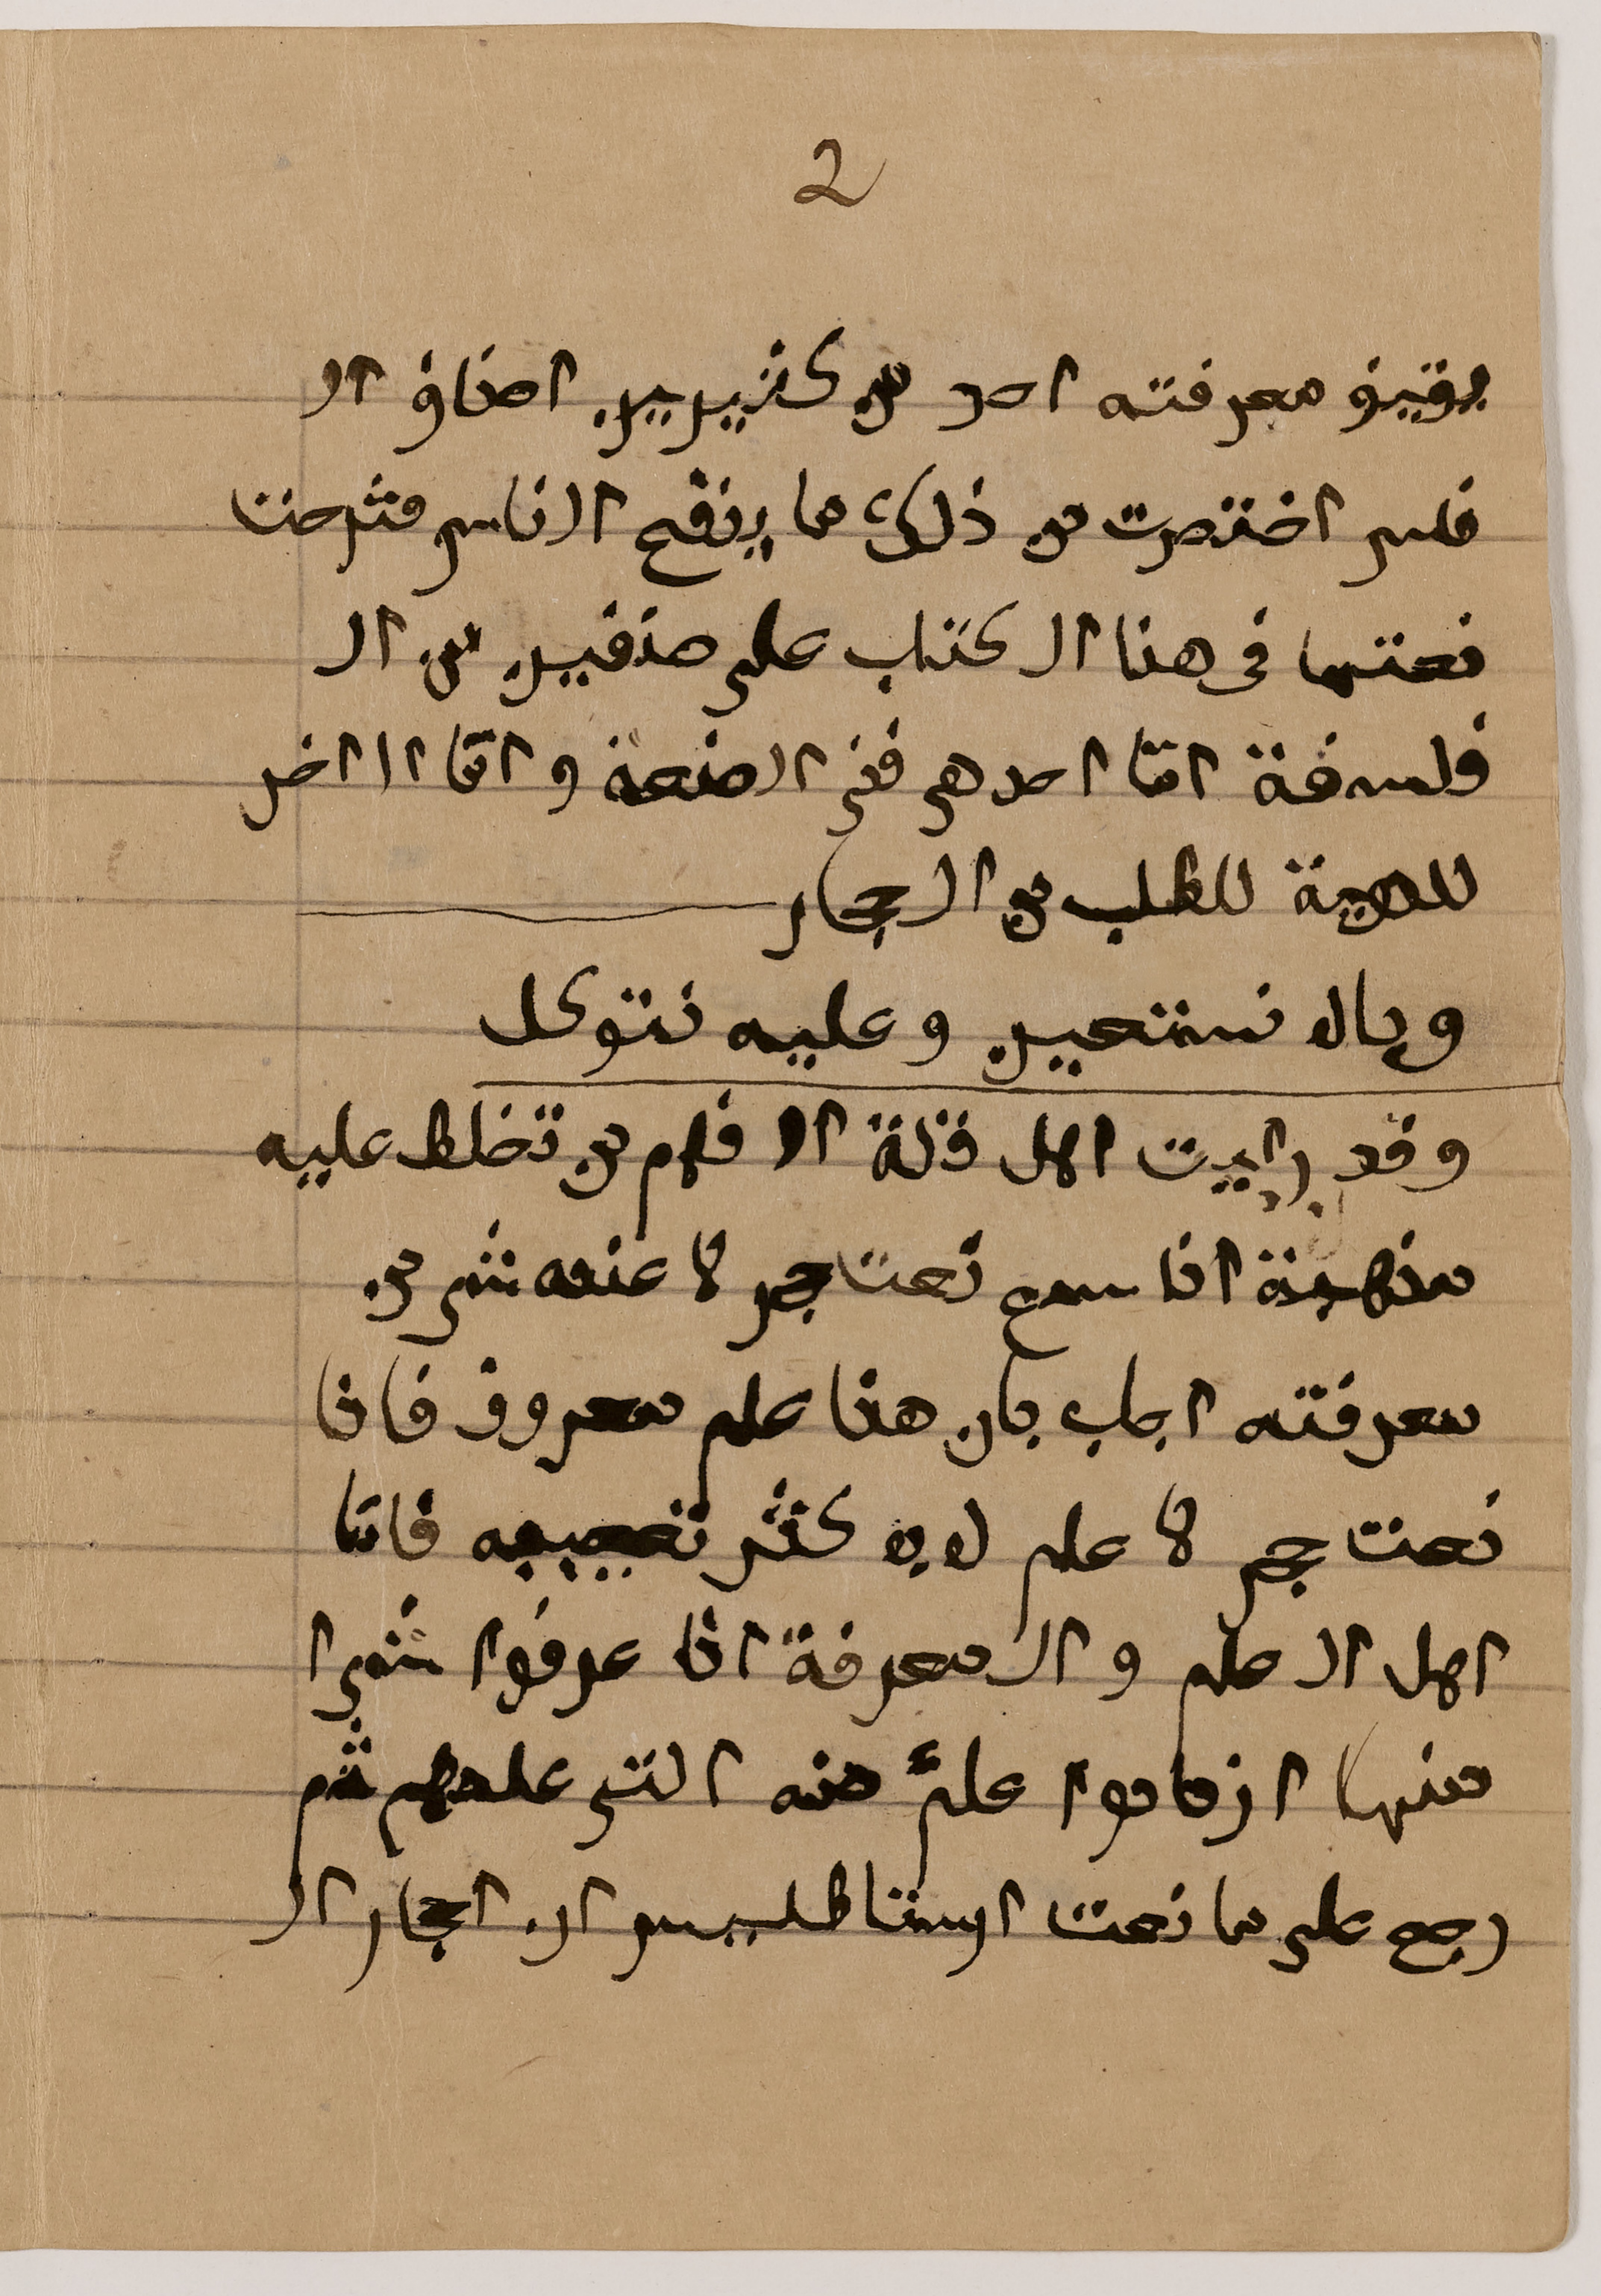 2
يوقيف معرفته احد من كثيرين اصناف ال
فلس اختصرت من ذلك ما ينفع الناس فشرحنا
نعتها فى هذا ال كتاب على صنفين من ال
فلسفة امّا احد هى ففى الصنعة و امّا الاخر
للطلب من ال حجار
و بال نستعين و عليه نتوكل
و قد رايت اهل قلة ال فهم من تخلط عليه
اذا سمع نعت حجر لا عنده شى من
معرفته اجاب بان هذا علم معروف فاذا
نعت حجر لا علم له به كثر تعجبه فامّا
اهل ال علم و ال معرفة اذا عرفوا شيا
منها ازدادوا علمً منه التى علمهم ثم
رجع على ما نعت ارسطاطليس ال احجار ال